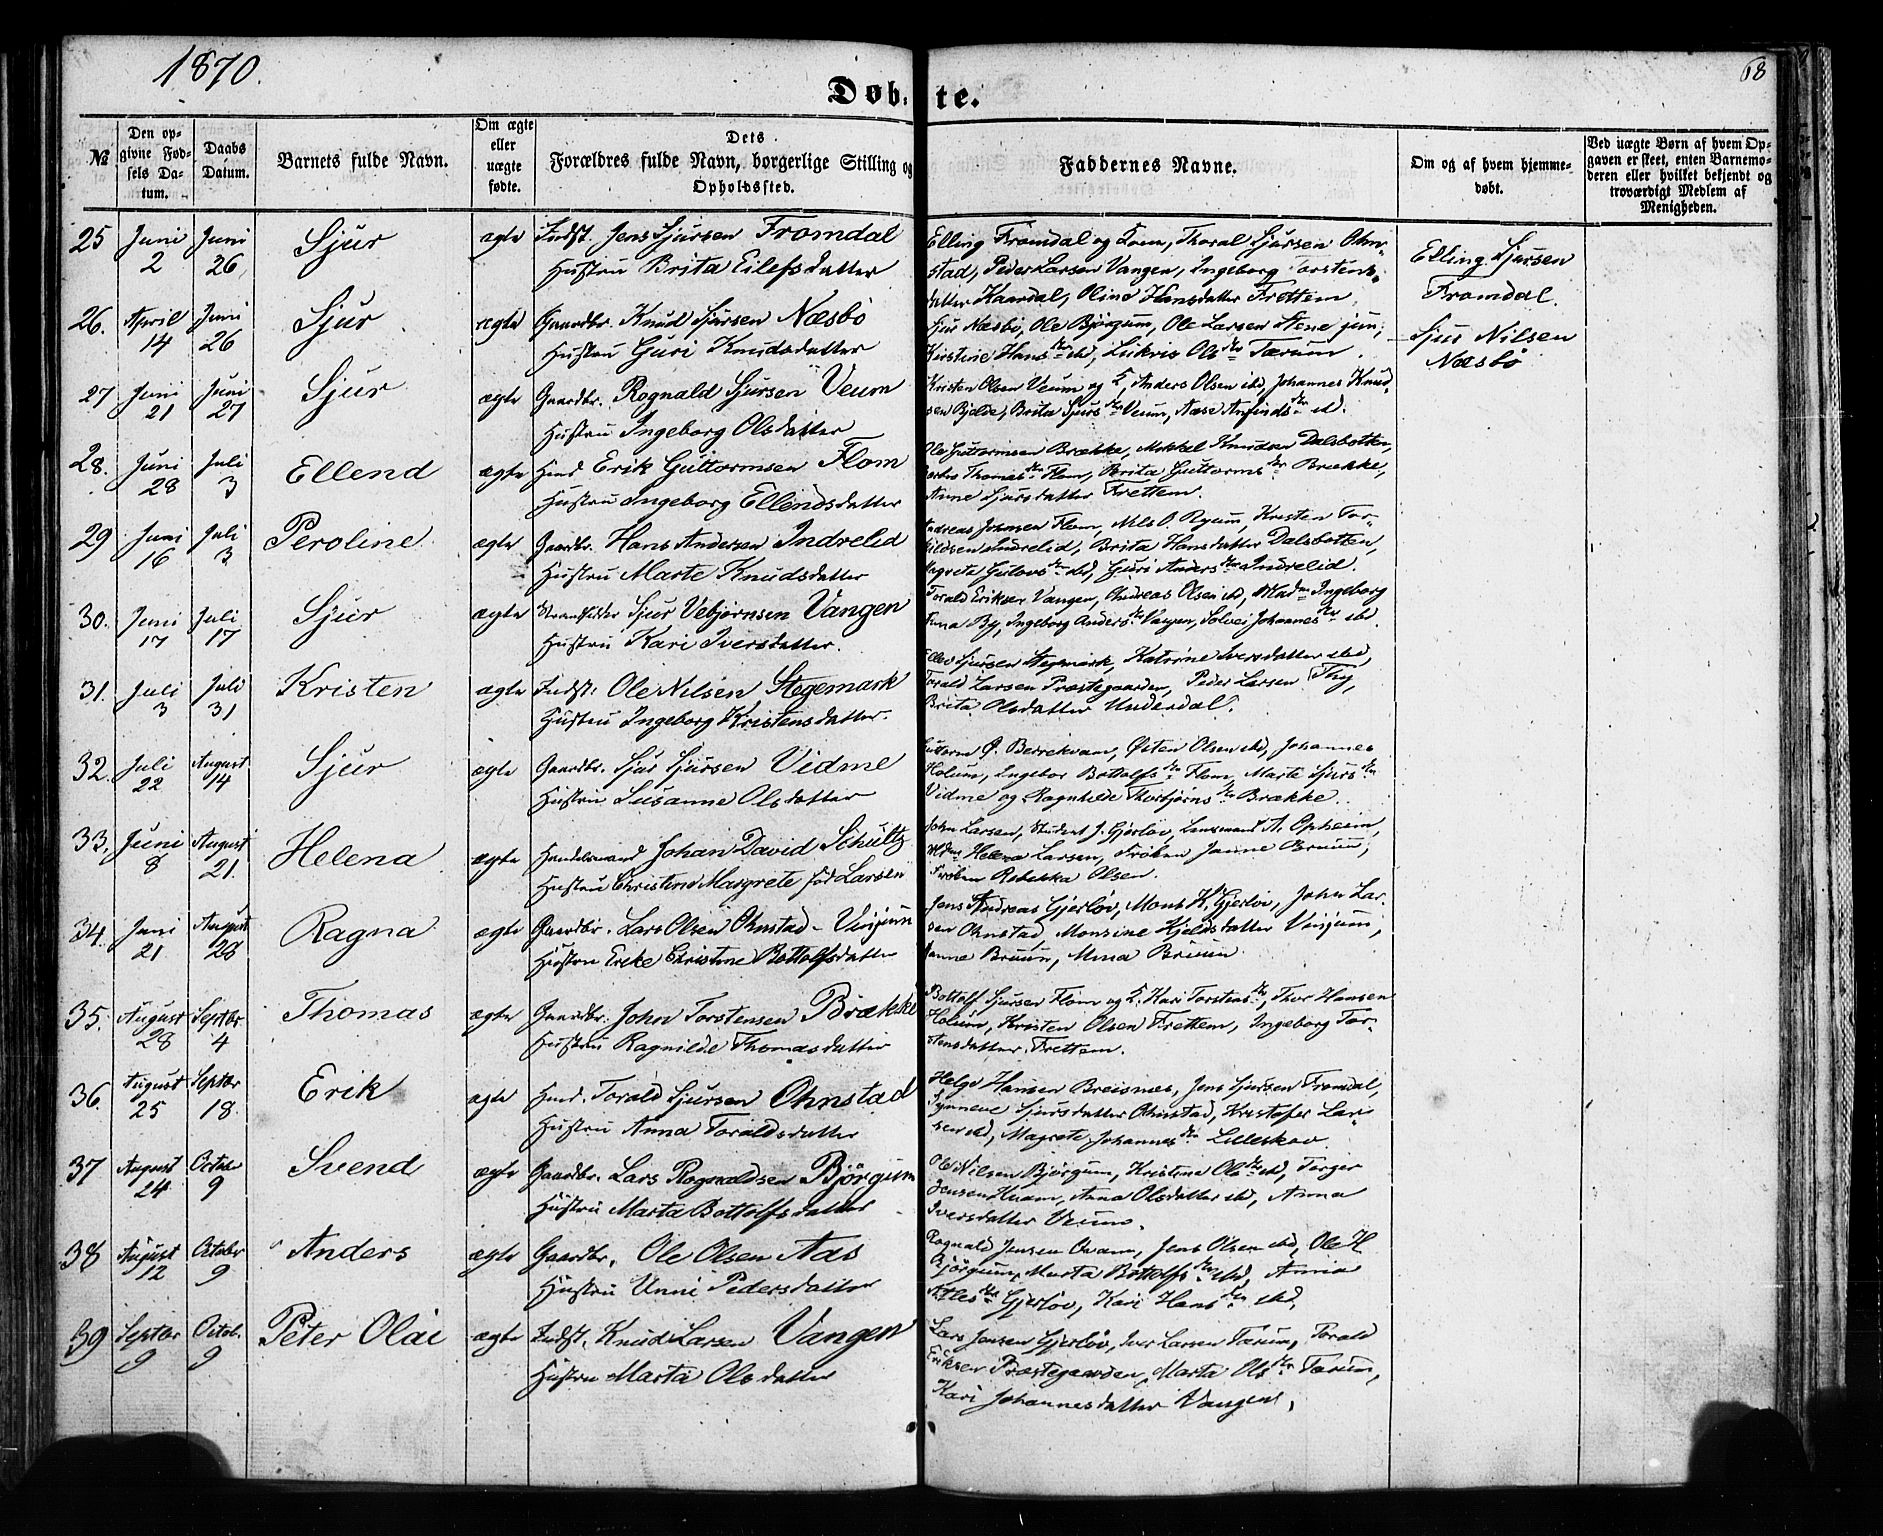 1870.
68
Døb: te.
№
Den opgivne Fødsels Datum.
Daabs Datum.
Barnets fulde Navn.
Om ægte eller uægte fødte.
Dets Forældres fulde Navn, borgerlige Stilling og Opholdssted.
Faddernes Navne.
Om og af hvem hjemmedøbt.
Ved uægte Børn af hvem Opgaven er skeet, enten Barnemoderen eller hvilket bekjendt og troværdigt Medlem af Menigheden.
25 Juni 2 Juni 26 Sjur ægte Indst. Jens Sjursen Fromdal
Hustru Brita Eilefsdatter
Elling Fromdal og Kone, Thoral Sjursen Ohn-
stad, Peder Larsen Vangen, Ingeborg Torstens-
datter Kaardal, Oline Hansdatter Frettem.
Elling Sjursen
Fromdal.
26. April 14 Juni 26 Sjur ægte Gaardbr. Knud Sjursen Næsbö
Hustru Guri Knudsdatter
Sjur Næsbö, Ole Björgum, Ole Larsen Stene jun;
Kirstine Hans dtr ibd, Lukris Ols dtr Tærum.
Sjur Nilsen
Næsbö
27 Juni 21 Juni 27 Sjur ægte Gaardbr. Rognald Sjursen Veum
Hustru Ingeborg Olsdatter
Kristen Olsen Veum og K, Anders Olsen ibd, Johannes Knud-
sen Bjelde, Brita Sjurs dtr Veum, Aase Anfinds dtr ibd.
28. Juni 28 Juli 3 Ellend ægte Hmd. Erik Guttormsen Flom
Hustru Ingeborg Ellendsdatter
Ole Guttormsen Brække, Mikkel Knudsen Dalsbotten,
Thomas dtr Flom, Brita Guttorms dtr Brække,
Anne Sjursdatter Frettem.
29 Juni 16 Juli 3 Peroline ægte Gaardbr. Hans Andersen Indrelid
Hustru Marte Knudsdatter
Andreas Johnsen Flom, Nils O. Ryum, Kristen Tor-
kildsen Indrelid, Brita Hansdatter Dalsbotten,
Magrete Gulovs dtr ibd, Guri Anders dtr Indrelid.
30. Juni 17 Juli 17 Sjur ægte Strandsidder Sjur Vebjørnsen Vangen
Hustru Kari Iversdatter.
Torald Eriksen Vangen, Andreas Olsen ibd, Madm Ingeborg
By, Ingeborg Anders dtr Vangen, Solvei Johannes dtr ibd.
31. Juli 3 Juli 31 Kristen ægte Indst: Ole Nilsen Stegemark
Hustru Ingeborg Kristensdatter.
Sjursen Stegemark, Katrine Iversdatter ibd,
Torald Larsen Præstegaarden, Peder Larsen Thy,
Brita Olsdatter Underdal.
32. Juli 22 August 14 Sjur ægte Gaardbr. Sjur Sjursen Vidme
Hustru Susanne Olsdatter
Guttorm Ø. Berrekvam, Østen Olsen ibd, Johannes
Holum, Ingebor Bottolfs dtr Flom, Marte Sjurs dtr
Vidme og Ragnhilde Thorbjørns dtr Brække.
33. Juni 8 August 21. Helena ægte Handelsmand Johan David Schultz
Hustru Christine Margrete fød Larsen
John Larsen, Student J. Gjerløv, Lensmand A. Opheim,
Mdm Helena Larsen, Frøken Janne Bruun,
Frøken Rebekka Olsen.
34. Juni 21 August 28 Ragna ægte Gaardbr. Lars Olsen Ohnstad - Vinjum
Hustru Erike Christine Bottolfsdatter
Jens Andreas Gjerløv, Mons K. Gjerløv, John Lar-
sen Ohnstad, Monsine Kjeldsdatter Vinjum,
Janne Bruun, Mina Bruun.
35. August 28 Septbr 4 Thomas ægte Gaardbr. John Torstensen Brække
Hustru Ragnilde Thomasdatter
Bottolf Sjursen Flom og K. Kari Torstens dtr, Thor Hansen
Holum, Kristen Olsen Frettem, Ingeborg Tor-
stensdatter Frettem.
36. August 25 Septbr 18. Erik ægte Hmd. Torald Sjursen Ohnstad
Hustru Anna Toraldsdatter
Helge Hansen Breisnes, Jens Sjursen Fromdal,
Synneve Sjursdatter Ohnstad, Kristofer Lar-
sen ibd, Magrete Johannes dtr Lilleskov.
37 August 24 October 9 Svend ægte Gaardbr. Lars Rognaldsen Björgum
Hustru Marta Bottolfsdatter
Ole Nilsen Björgum, Kristine Ols dtr ibd, Torger
Jensen Kvam, Anna Olsdatter ibd, Anna
Iversdatter Veum.
38 August 12 October 9 Anders ægte Gaardbr. Ole Olsen Aas
Hustru Unni Pedersdatter
Rognald Jensen Kvam, Jens Olsen ibd, Ole H
Björgum, Marta Bottolfs dtr ibd, Anna
Atles dtr Gjerløv, Kari Hans dtr ibd.
39 Septbr 9 Octob. 9 Peter Olai ægte Indst. Knud Larsen Vangen
Hustru Marta Olsdatter
Lars Jensen Gjerløv, Iver Larsen Tærum, Torald
Eriksen Præstegaarden, Marta Ols dtr Tærum,
Kari Johannesdatter Vangen.